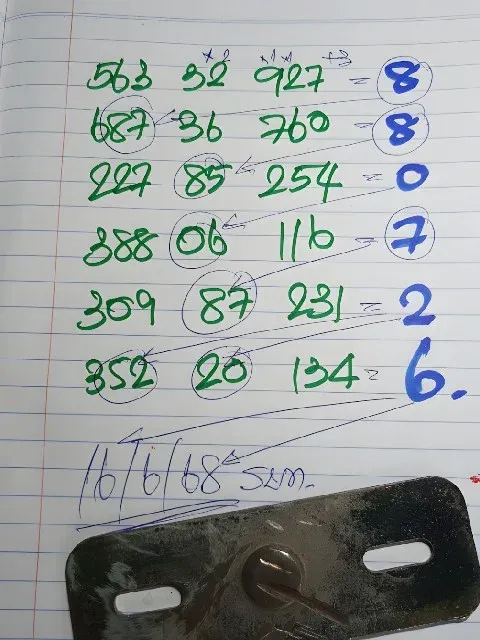 +2 +1 +1 +3
563 32 927 = 8
687 36 760 = 8
227 85 254 = 0
388 06 116 = 7
309 87 231 = 2
352 20 134 = 6.
16/6/68